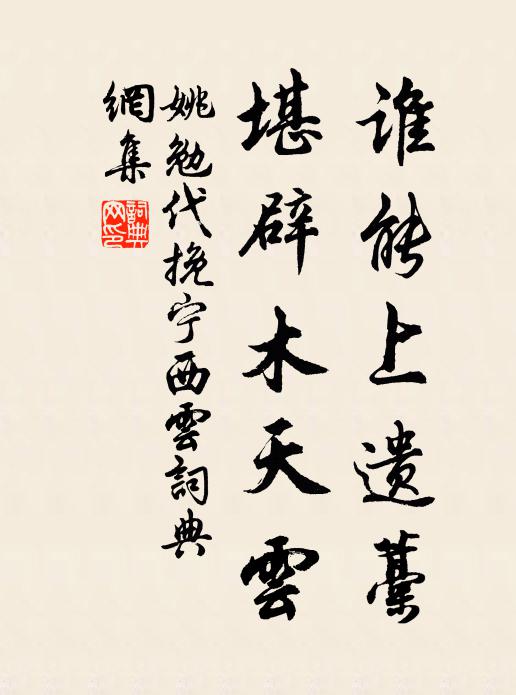 谁能上遗藁
堪辟木天雲
姚勉代挽宁西雲詞典
網集
詞典網印